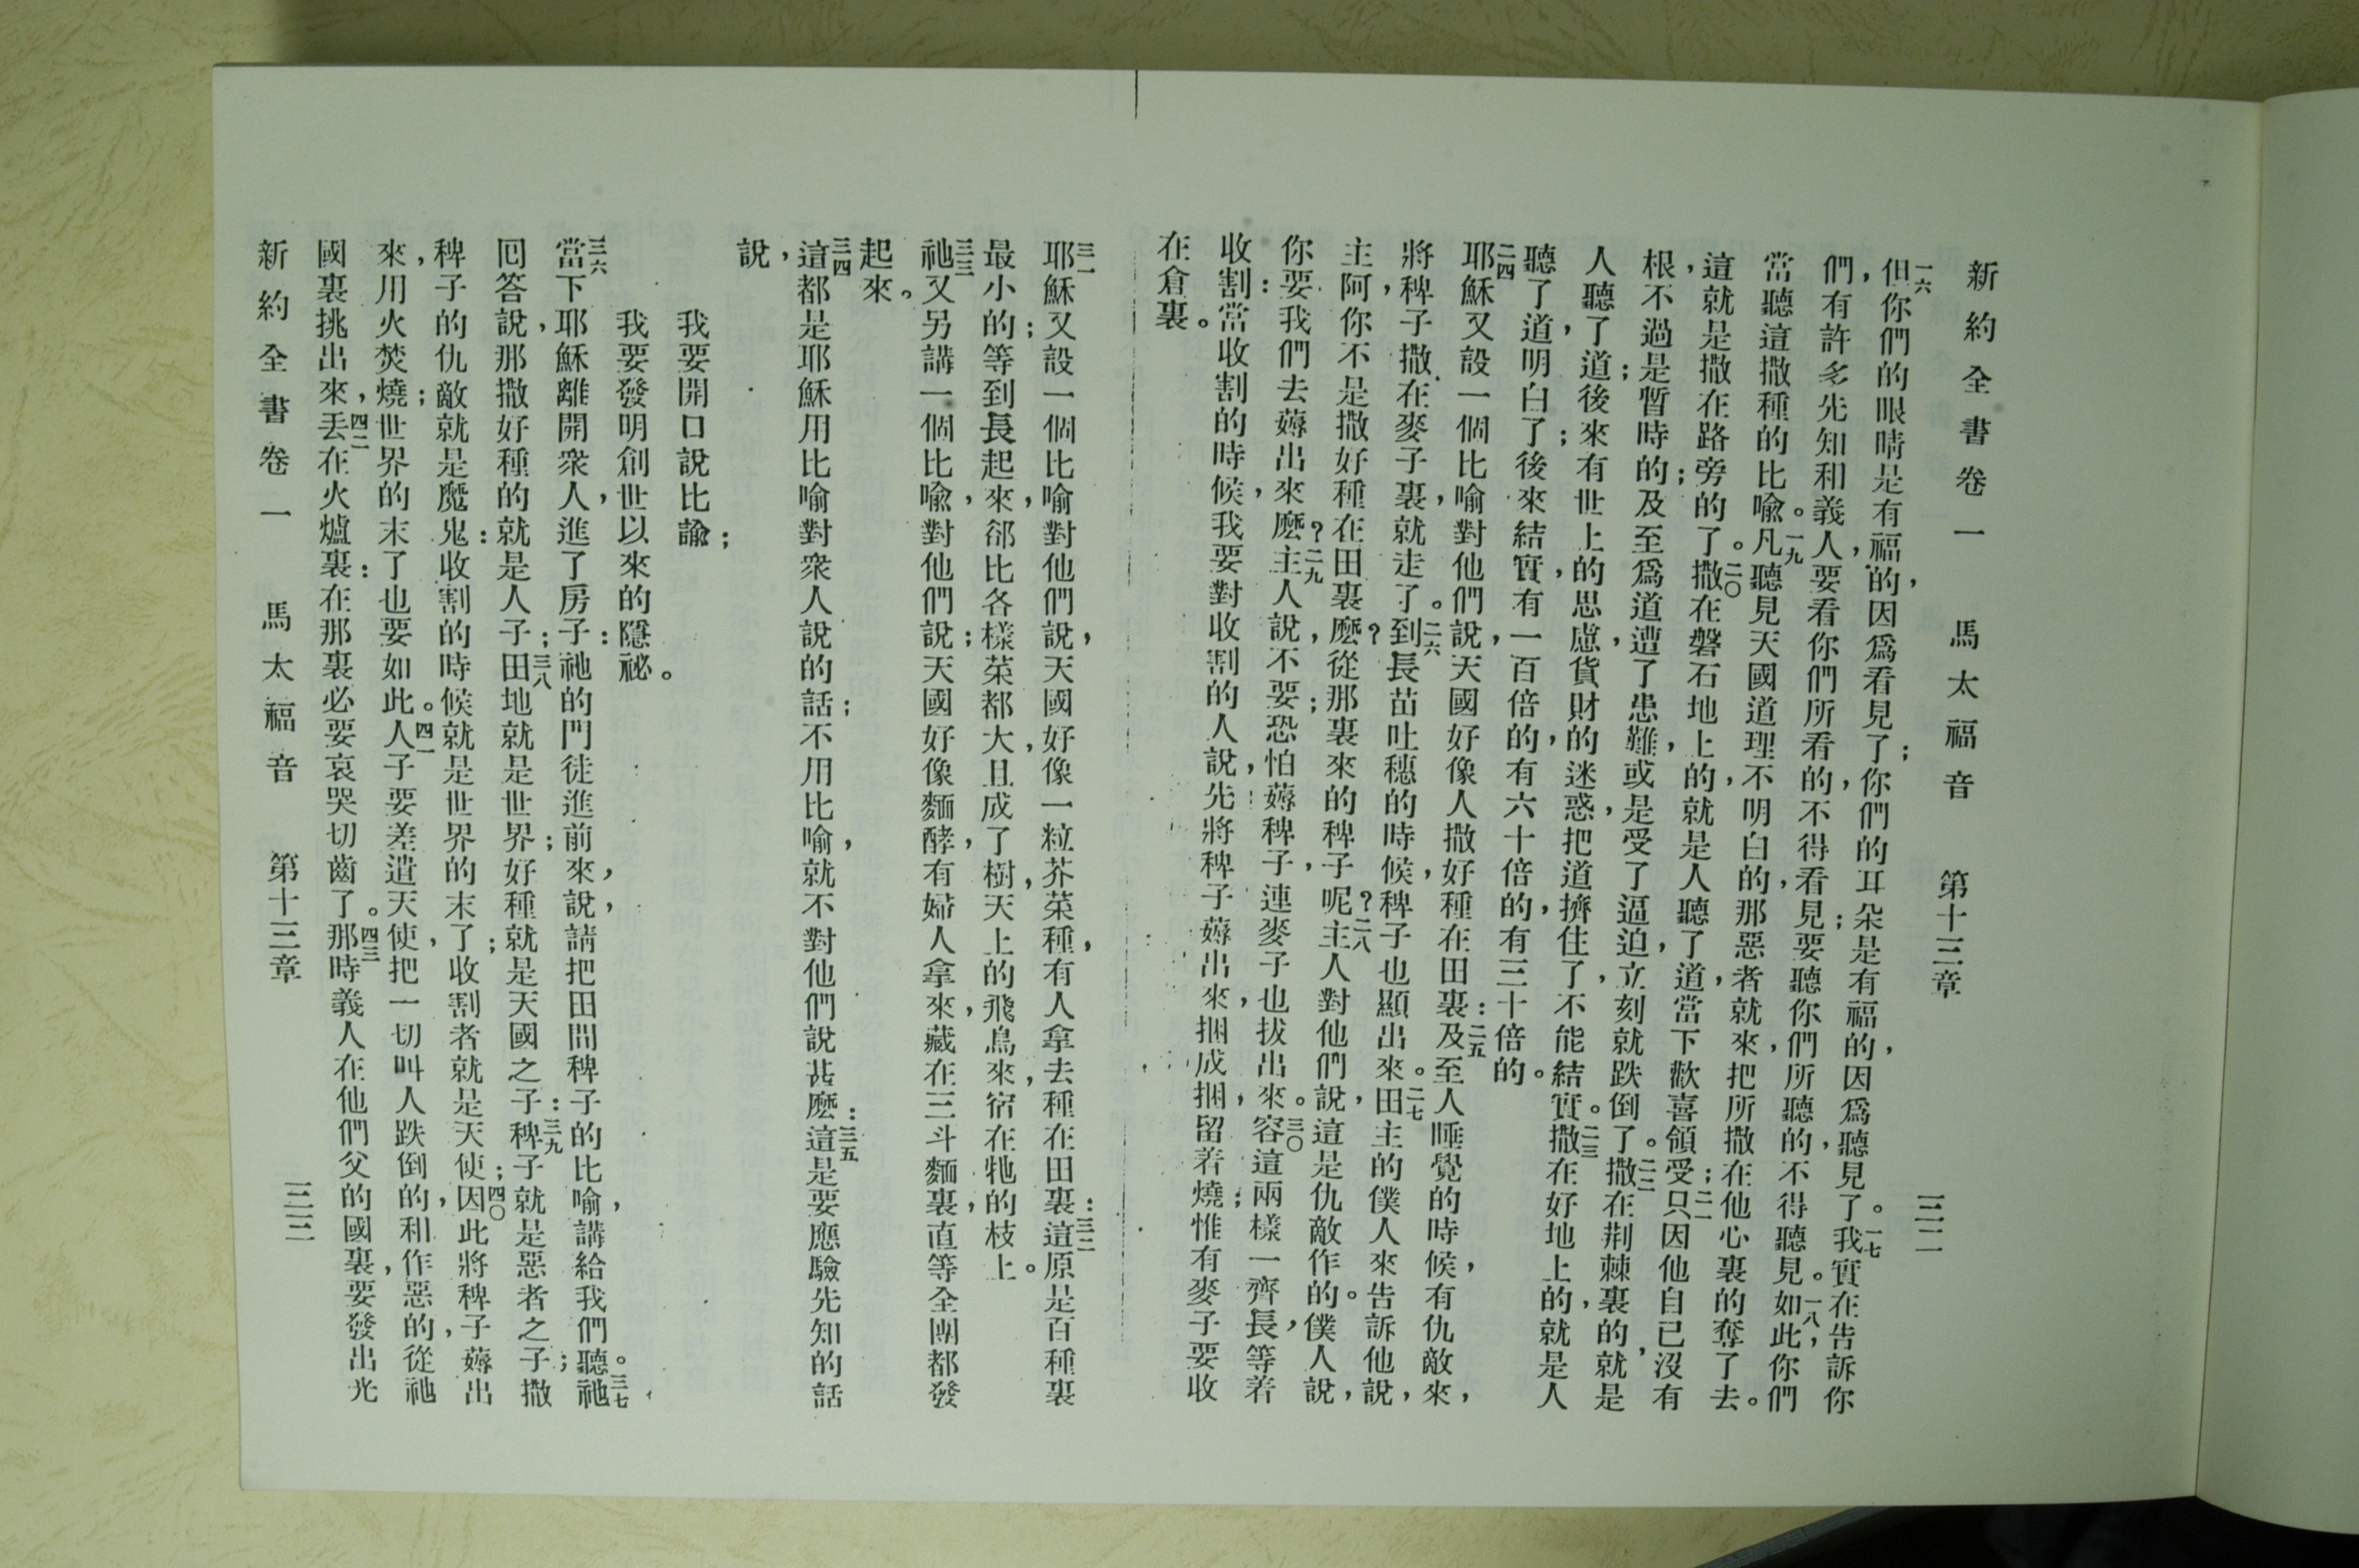 新約全書卷一 馬太福音 第十三章 三二
一六但你們的眼睛是有福的，因爲看見了；你們的耳朵是有福的，因爲聽見了。一七我實在告訴你
們，有許多先知和義人，要看你們所看的，不得看見；要聽你們所聽的，不得聽見。一八如此，你們
當聽這撒種的比喩。一九凡聽見天國道理，不明白的，那惡者就來，把所撒在他心裏的奪了去。
這就是撒在路旁的了。二〇撒在磐石地上的，就是人聽了道，當下歡喜領受；二一只因他自己沒有
根，不過是暫時的；及至爲道遭了患難，或是受了逼迫，立刻就跌倒了。二二撒在荆棘裏的，就是
人聽了道；後來有世上的思慮，貨財的迷惑，把道擠住了，不能結實。二三撒在好地上的，就是人
聽了道，明白了；後來結實，有一百倍的，有六十倍的，有三十倍的。
二四耶穌又設一個比喻對他們說，天國好像人撒好種在田裏：二五及至人睡覺的時候，有仇敵來，
將稗子撒在麥子裏，就走了。二六到長苗吐穗的時候，稗子也顯出來。二七田主的僕人來告訴他說，
主阿，你不是撒好種在田裏麼？從那裏來的稗子呢？二八主人對他們說，這是仇敵作的。僕人說，
你要我們去薅出來麼？二九主人說，不要；恐怕薅稗子，連麥子也拔出來。三〇容這兩樣一齊長，等着
收割：當收割的時候，我要對收割的人說，先將稗子薅出來，捆成捆，留着燒；惟有麥子要收
在倉裏。
三一耶穌又設一個比喻對他們說，天國好像一粒芥菜種，有人拿去種在田裏：三二這原是百種裏
最小的；等到長起來，郤比各樣菜都大，且成了樹，天上的飛鳥來，宿在牠的枝上。
三三祂又另講一個比喩，對他們說；天國好像麵酵，有婦人拿來，藏在三斗麵裏，直等全團都發
起來。
三四這都是耶穌用比喻對衆人說的話；不用比喻，就不對他們說甚麼：三五這是要應驗先知的話
說，
我要開口說比諭；
我要發明創世以來的隱祕。
三六當下耶穌離開衆人，進了房子：祂的門徒進前來，說，請把田間稗子的比喻，講給我們聽。三七祂
囘答說，那撒好種的就是人子；三八田地就是世界；好種就是天國之子：稗子就是惡者之子；三九撒
稗子的仇敵就是魔鬼：收割的時候就是世界的末了；收割者就是天使；四〇因此將稗子薅出
來，用火焚燒；世界的末了也要如此。四一人子要差遣天使，把一切叫人跌倒的，和作惡的，從祂
國裏挑出來，四二丢在火爐裏：在那裏必要哀哭切齒了。四三那時義人在他們父的國裏，要發出光
新約全書卷一 馬太福音 第十三章 三二